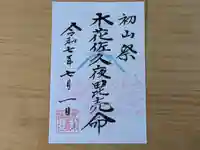 初山祭
木花佐久夜毘売命
令和七年七月一日